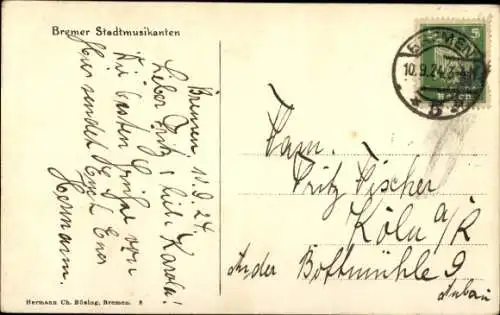 Bremer Stadtmusikanten
5
BREMEN
10.9.24
Bremen, 11.9.24
Lieber Fritz, liebe Karola!
Die besten Grüße von
Hier sendet Euch Euer
Hermann.
Fam.
Fritz Fischer
Köln a/R
An der Bottmühle 9
Hermann Ch. Büsing, Bremen. 8